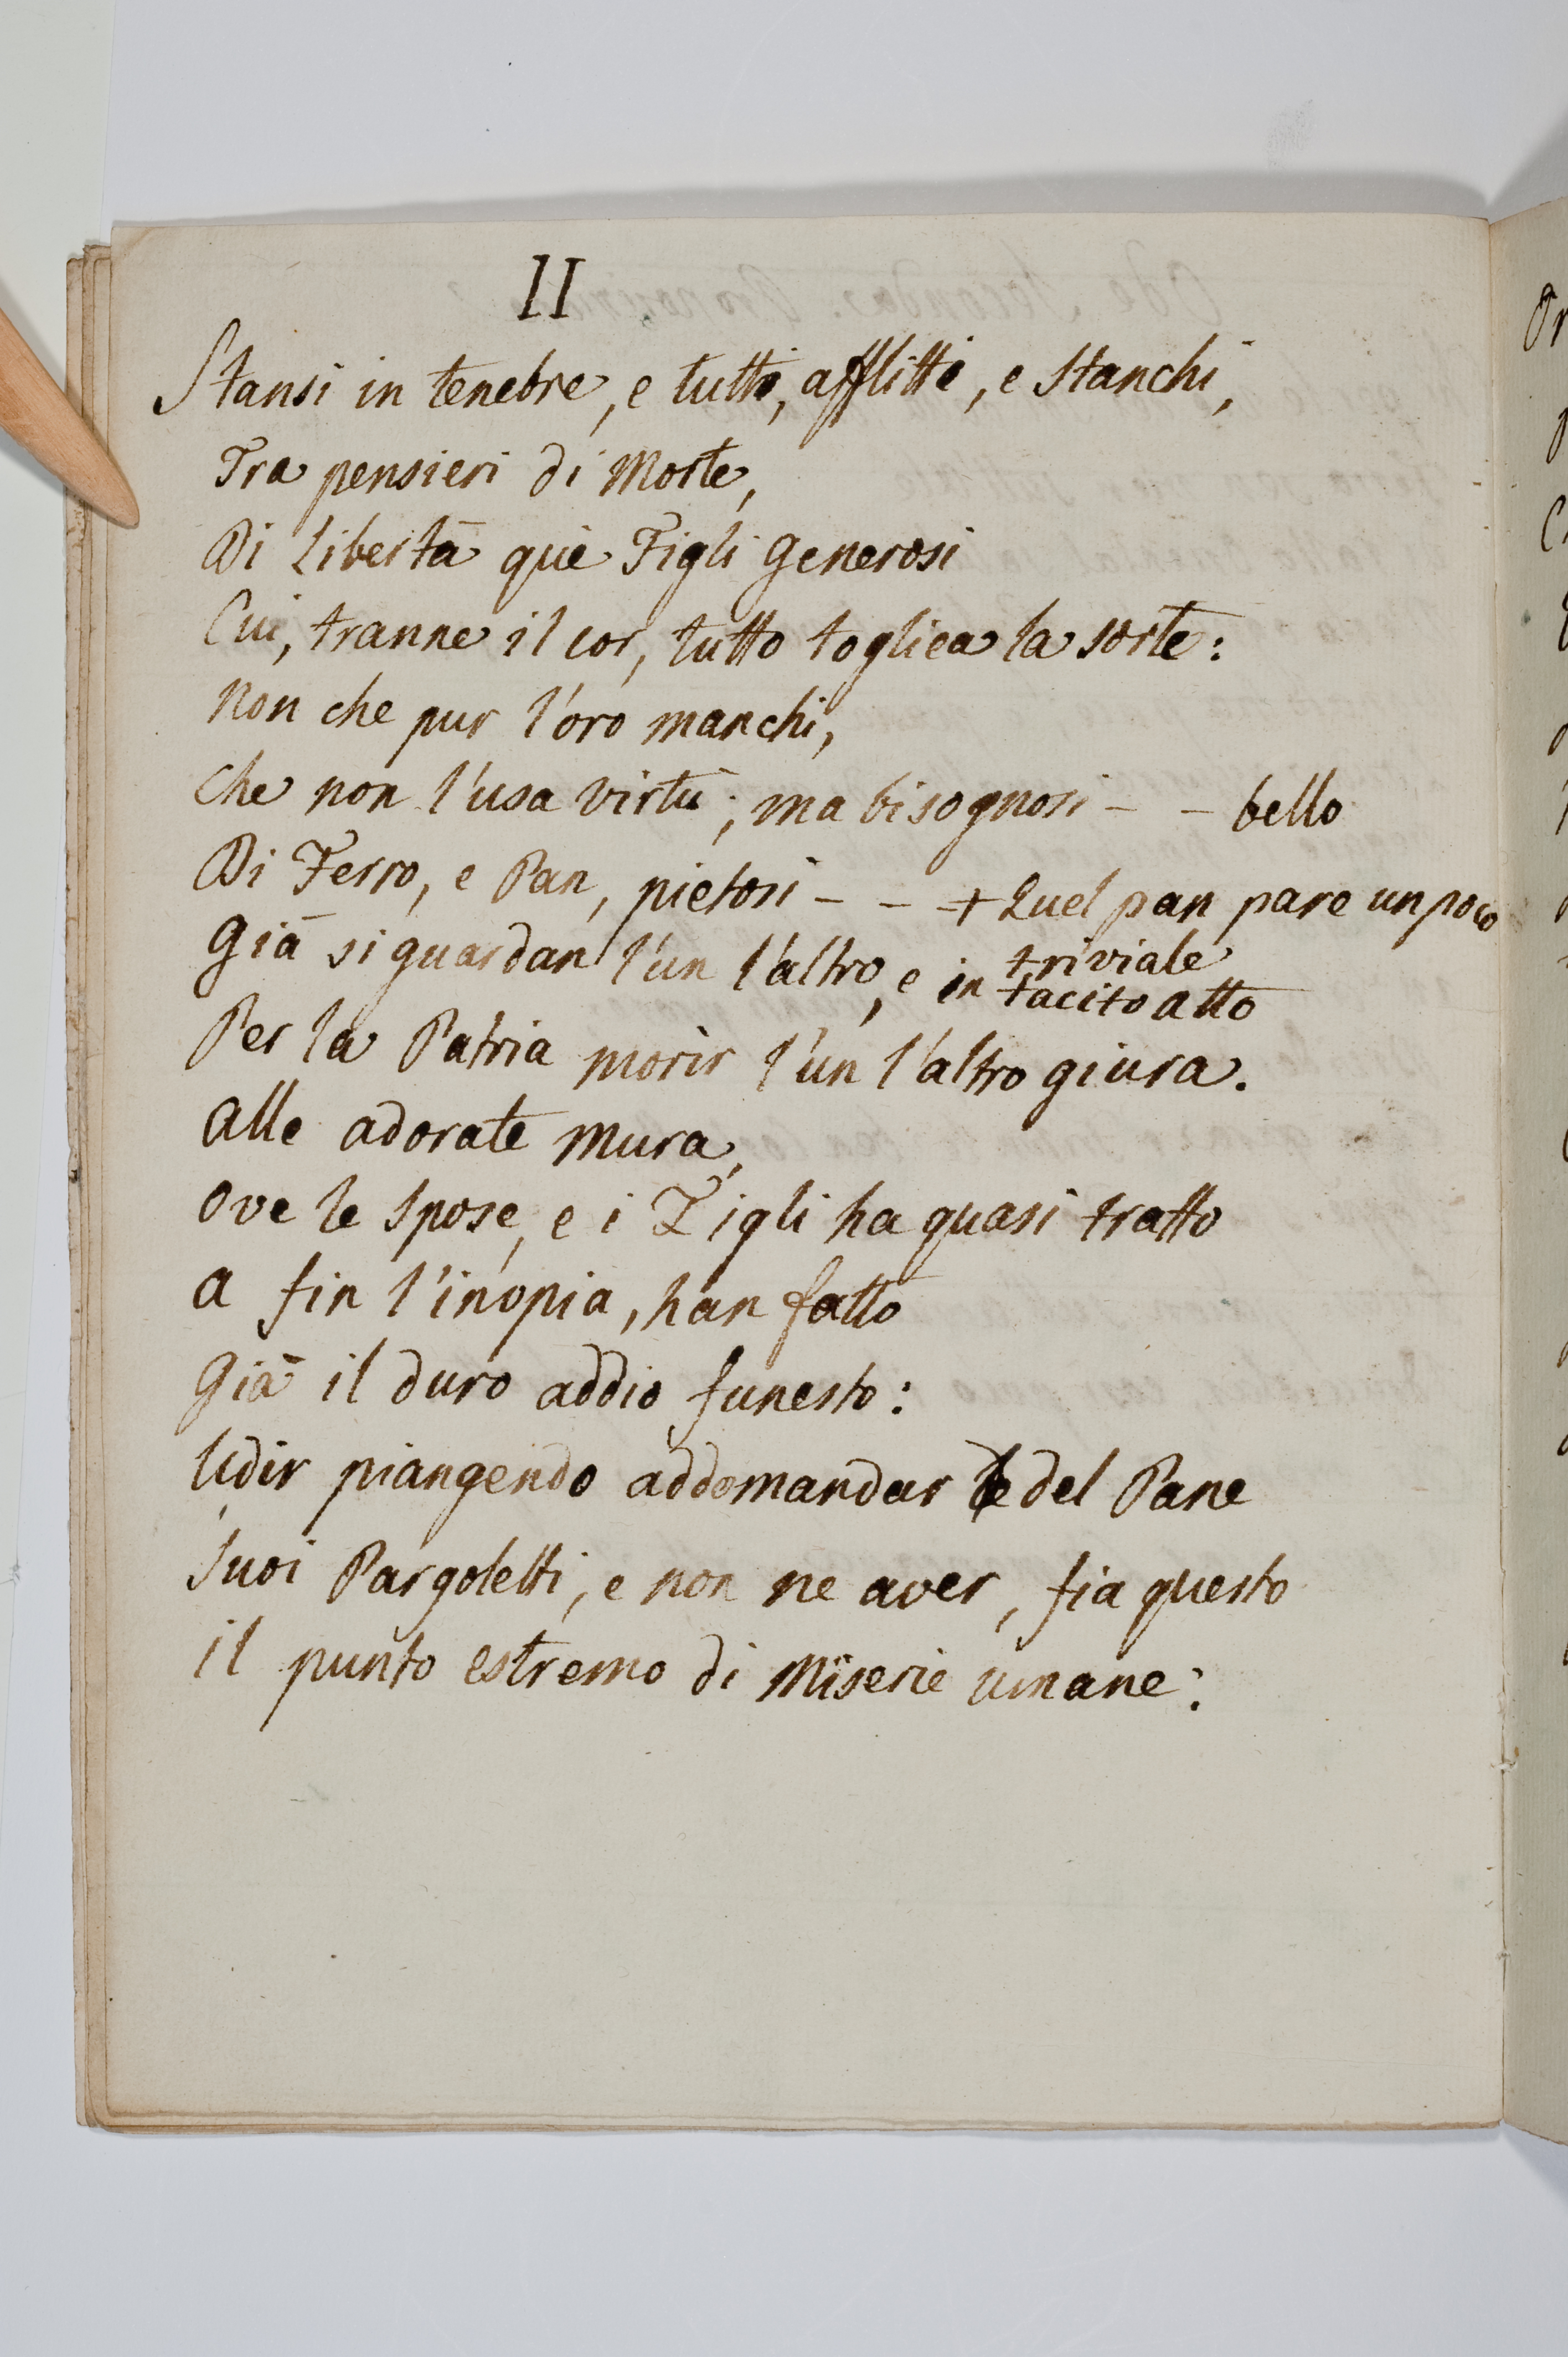 II
Stansi in tenebre, e tutti, afflitti, e stanchi,
Tra pensieri di Morte,
Di libertà què Figli generosi
Cui, tranne il cor, tutto togliea la sorte:
Non che pur l'oro manchi,
Che non l'usa virtù; ma bisognosi - - bello
Di Ferro, e Pan, pietosi - - + Quel pan pare un poco
triviale
Già si guardan l'un l'altro, e in tacito atto
Per la Patria morir l'un l'altro giura.
Alle adorate Mura,
Ove le Spose, e i Figli ha quasi tratto
A fin l'inopia, han fatto
Già il duro addio funesto:
Udir piangendo addomandar del Pane
Suoi Pargoletti, e non ne aver, fia questo
il punto estremo di Miserie umane: